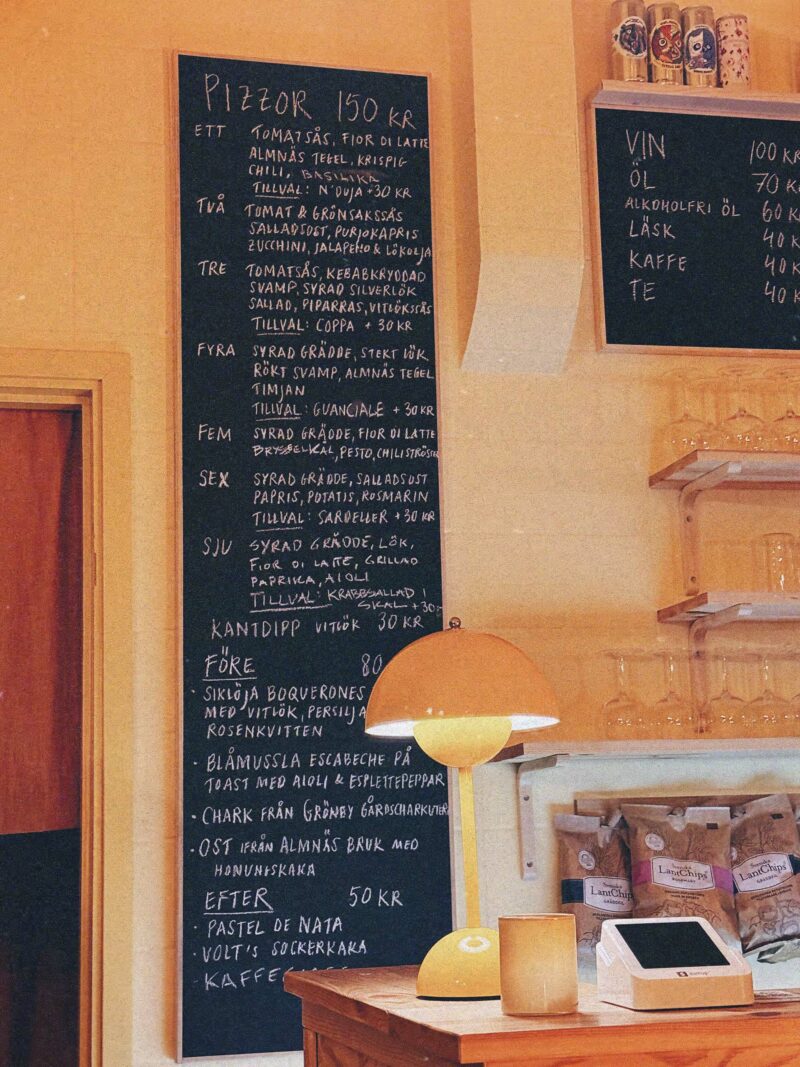 PIZZOR 150 KR
ETT TOMATSÅS, FIOR DI LATTE
ALMNÄS TEGEL, KRISPIG
CHILI, BASILIKA
TILLVAL: N'DUJA +30 KR
TVÅ TOMAT & GRÖNSAKSSÅS
SALLADSOST, PURJOKAPRIS
ZUCCHINI, JALAPEÑO & LÖKOLJA
TRE TOMATSÅS, KEBABKRYDDAD
SVAMP, SYRAD SILVERLÖK
SALLAD, PIPARRAS, VITLÖKSSÅS
TILLVAL: COPPA + 30 KR
FYRA SYRAD GRÄDDE, STEKT LÖK
RÖKT SVAMP, ALMNÄS TEGEL
TIMJAN
TILLVAL: GUANCIALE + 30 KR
FEM SYRAD GRÄDDE, FIOR DI LATTE
BRYSSELKÅL, PESTO, CHILISTRÖSSEL
SEX SYRAD GRÄDDE, SALLADSOST
PAPRIS, POTATIS, ROSMARIN
TILLVAL: SARDELLER + 30 KR
SJU SYRAD GRÄDDE, LÖK,
FIOR DI LATTE, GRILLAD
PAPRIKA, AIOLI
TILLVAL: KRABBSALLAD I
SKAL +30
KANTDIPP VITLÖK 30 KR
FÖRE 80
· SIKLÖJA BOQUERONES
MED VITLÖK, PERSILJA
ROSENKVITTEN
· BLÅMUSSLA ESCABECHE PÅ
TOAST MED AIOLI & ESPLETTEPEPPAR
· CHARK FRÅN GRÖNBY GÅRDSCHARKUTERI
· OST IFRÅN ALMNÄS BRUK MED
HONUNGSKAKA
EFTER 50 KR
· PASTEL DE NATA
· VOLT'S SOCKERKAKA
VIN 100 KR
ÖL 70 KR
ALKOHOLFRI ÖL 60 K
LÄSK 40 K
KAFFE 40 K
TE 40 K
Svenska
LantChips
GRÄDDFIL
Svenska
LantChips
ROSEMARY
Svenska
LantChips
GRÄDDFIL